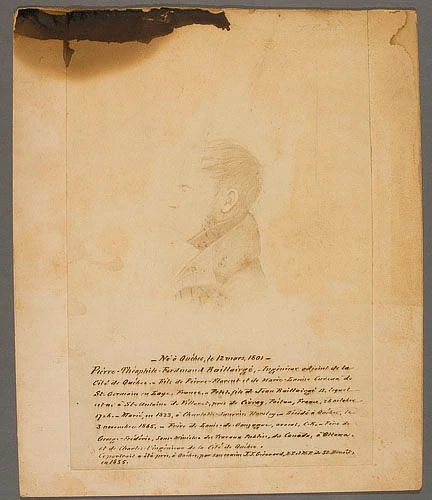 — Né à Québec, le 12 mars, 1801 —
Pierre-Théophile-Ferdinand Baillairgé, — Ingénieur adjoint de la
Cité de Québec. — Fils de Pierre-Florent et de Marie-Louise Cureux de
St. Germain en Laye, France. — Petit-fils de Jean Baillairgé 1er, lequel
est né à St. Antoine de Villaret, près de Civray, Poitou, France, 31 octobre
1726. — Marié, en 1823, à Charlotte — Décédé à Québec, le
3 novembre 1865. — Frère de Louis de Gonzague, avocat, C.R. — Père de
George-Frédéric, Sous-Ministre des Travaux Publics, du Canada, à Ottawa
et de Charles l'ingénieur de la Cité de Québec. —
Ce portrait a été pris, à Québec, par son cousin J.J. Girouard, de St. Benoît,
en 1835.